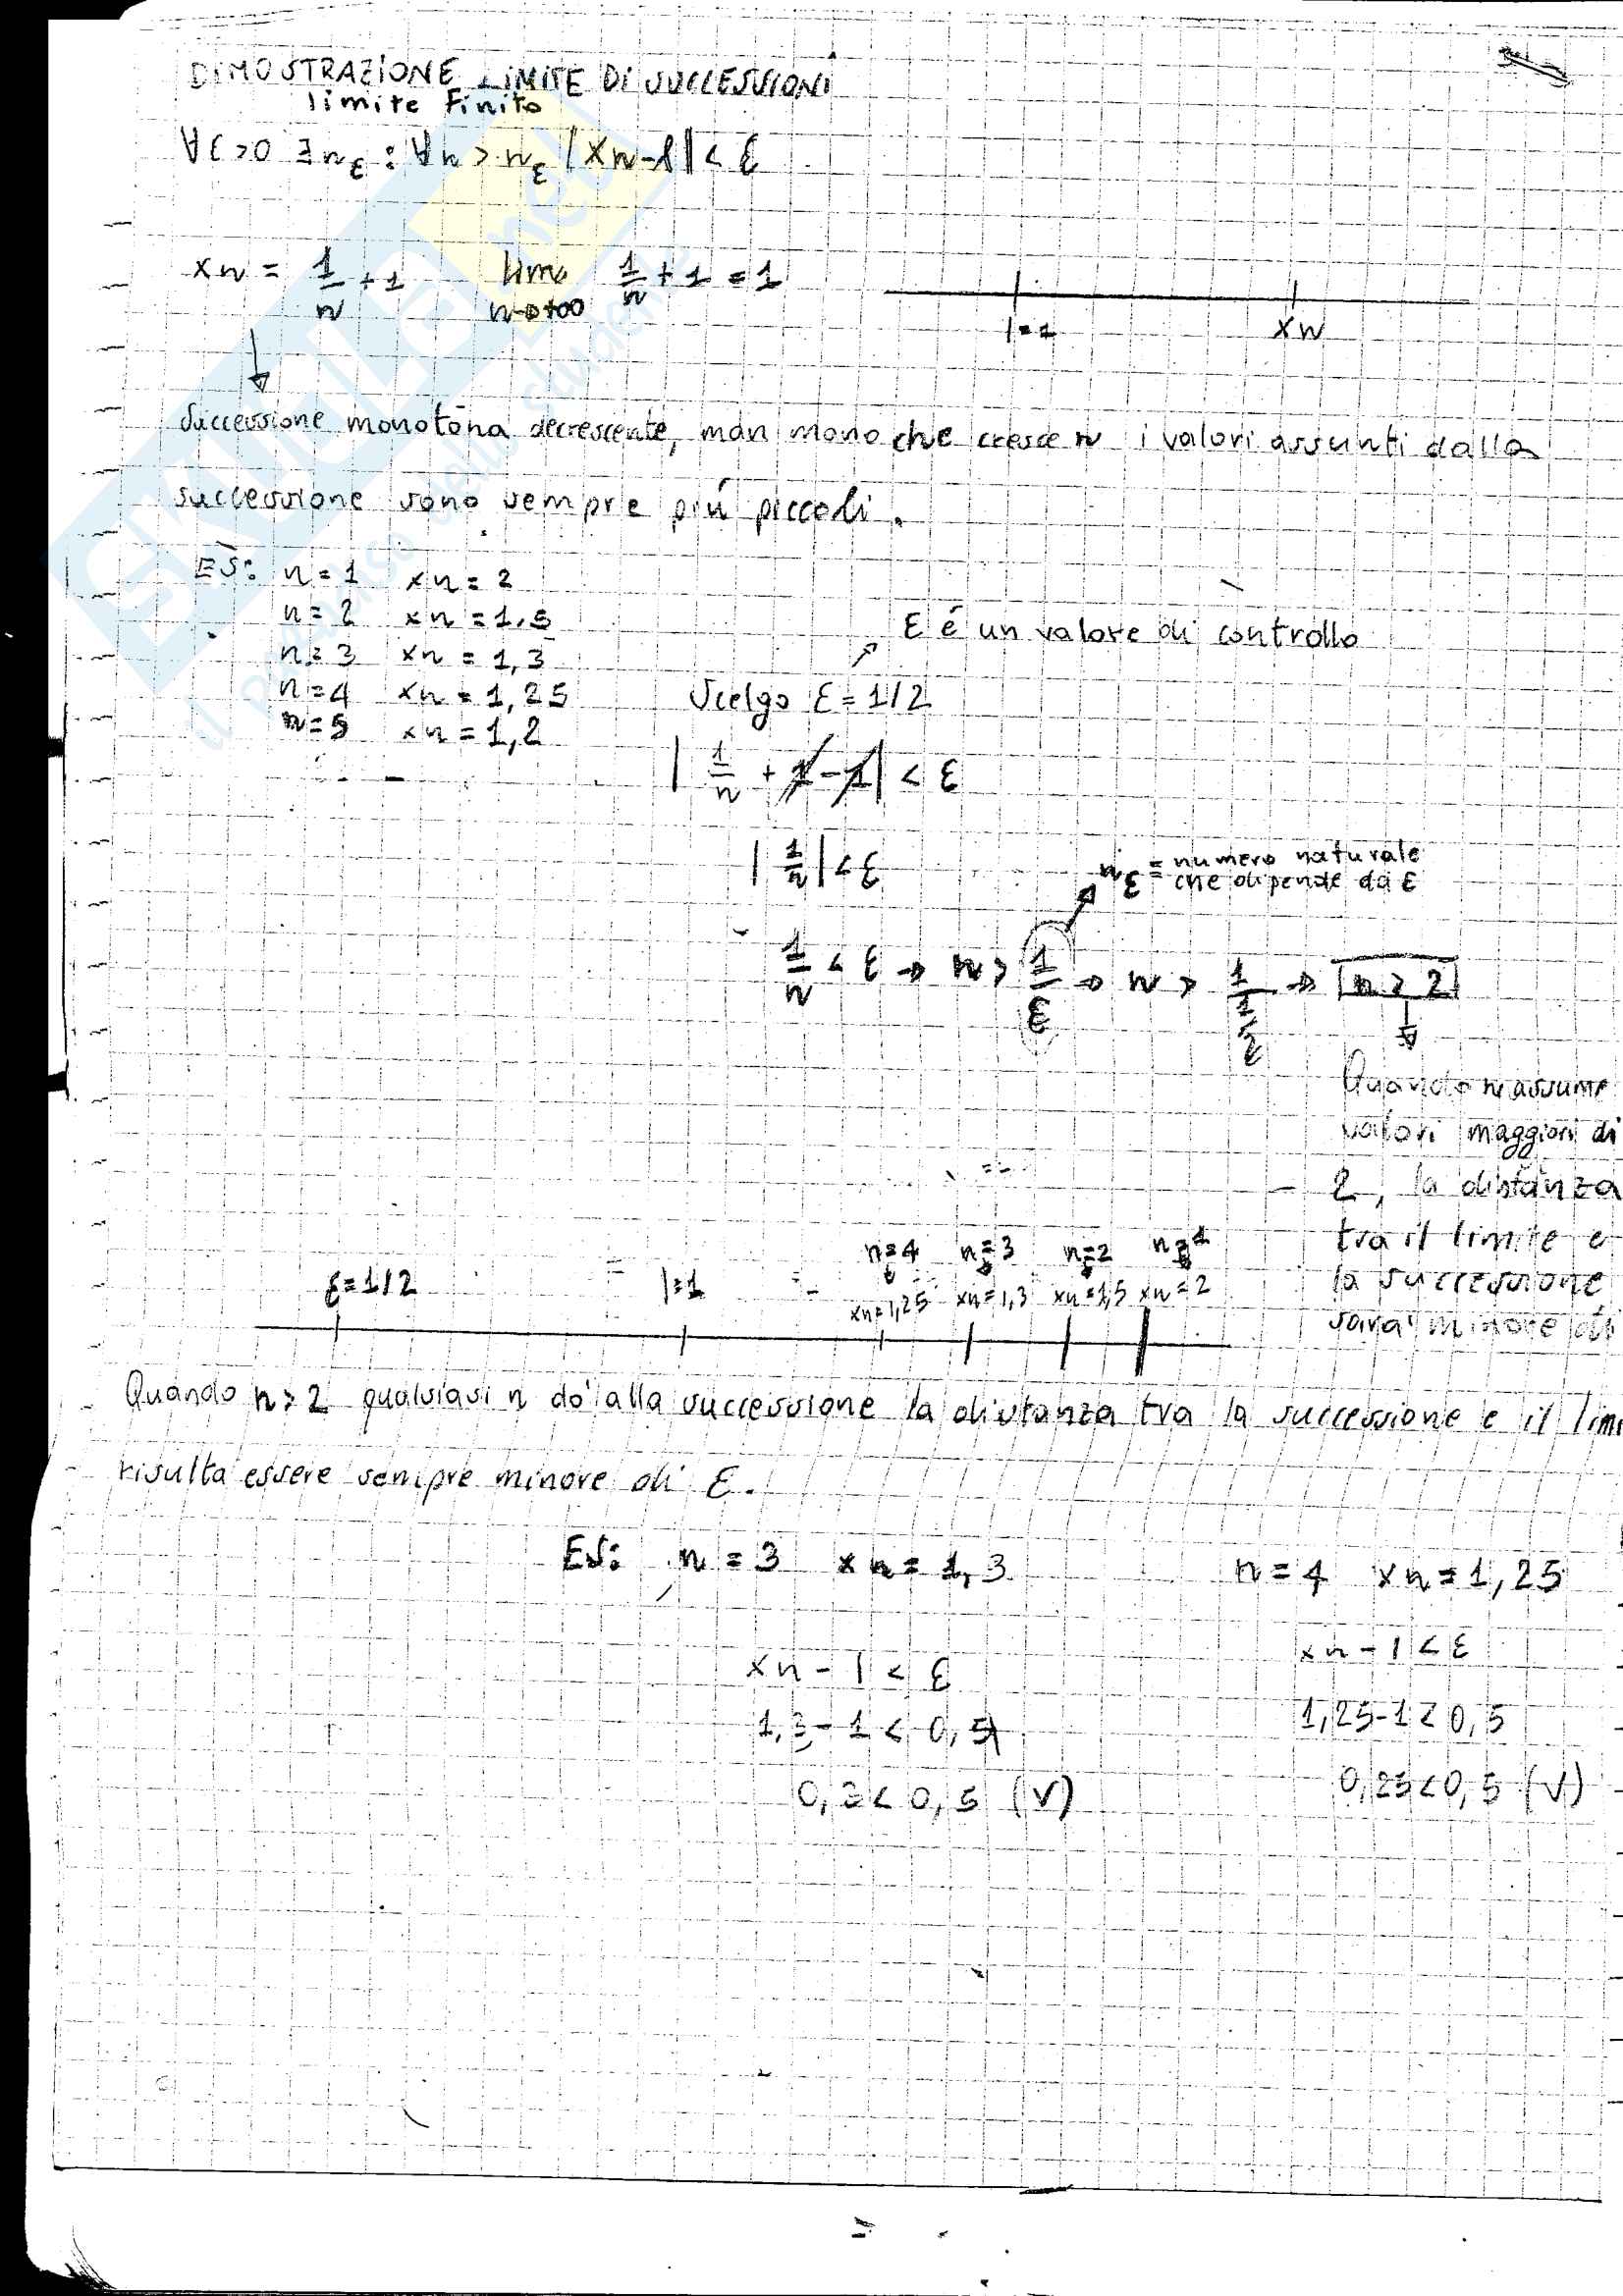 DIMOSTRAZIONE LIMITE DI SUCCESSIONI
limite Finito
∀ε>0 ∃nε : ∀n > nε |xn-l| < ε
xn = 1/n + 1   lim n→+∞ 1/n + 1 = 1
l=1   xn
Successione monotona decrescente, man mano che cresce n i valori assunti dalla
successione sono sempre più piccoli.
ES: n=1 xn=2
n=2 xn=1,5
n=3 xn=1,3
n=4 xn=1,25
n=5 xn=1,2
ε é un valore di controllo
Scelgo ε=1/2
|1/n + 1 - 1| < ε
|1/n| < ε
nε = numero naturale
che dipende da ε
1/n < ε → n > 1/ε → n > 1/(1/2) → n > 2
Quando n assume
valori maggiori di
2, la distanza
tra il limite e
la successione
sara' minore di
n=4 n=3 n=2 n=1
ε=1/2 l=1 xn=1,25 xn=1,3 xn=1,5 xn=2
Quando n>2 qualsiasi n do' alla successione la distanza tra la successione e il lim
risulta essere sempre minore di ε.
ES: n=3 xn=1,3   n=4 xn=1,25
xn - l < ε   xn - l < ε
1,3 - 1 < 0,5   1,25-1 < 0,5
0,3 < 0,5 (V)   0,25<0,5 (V)